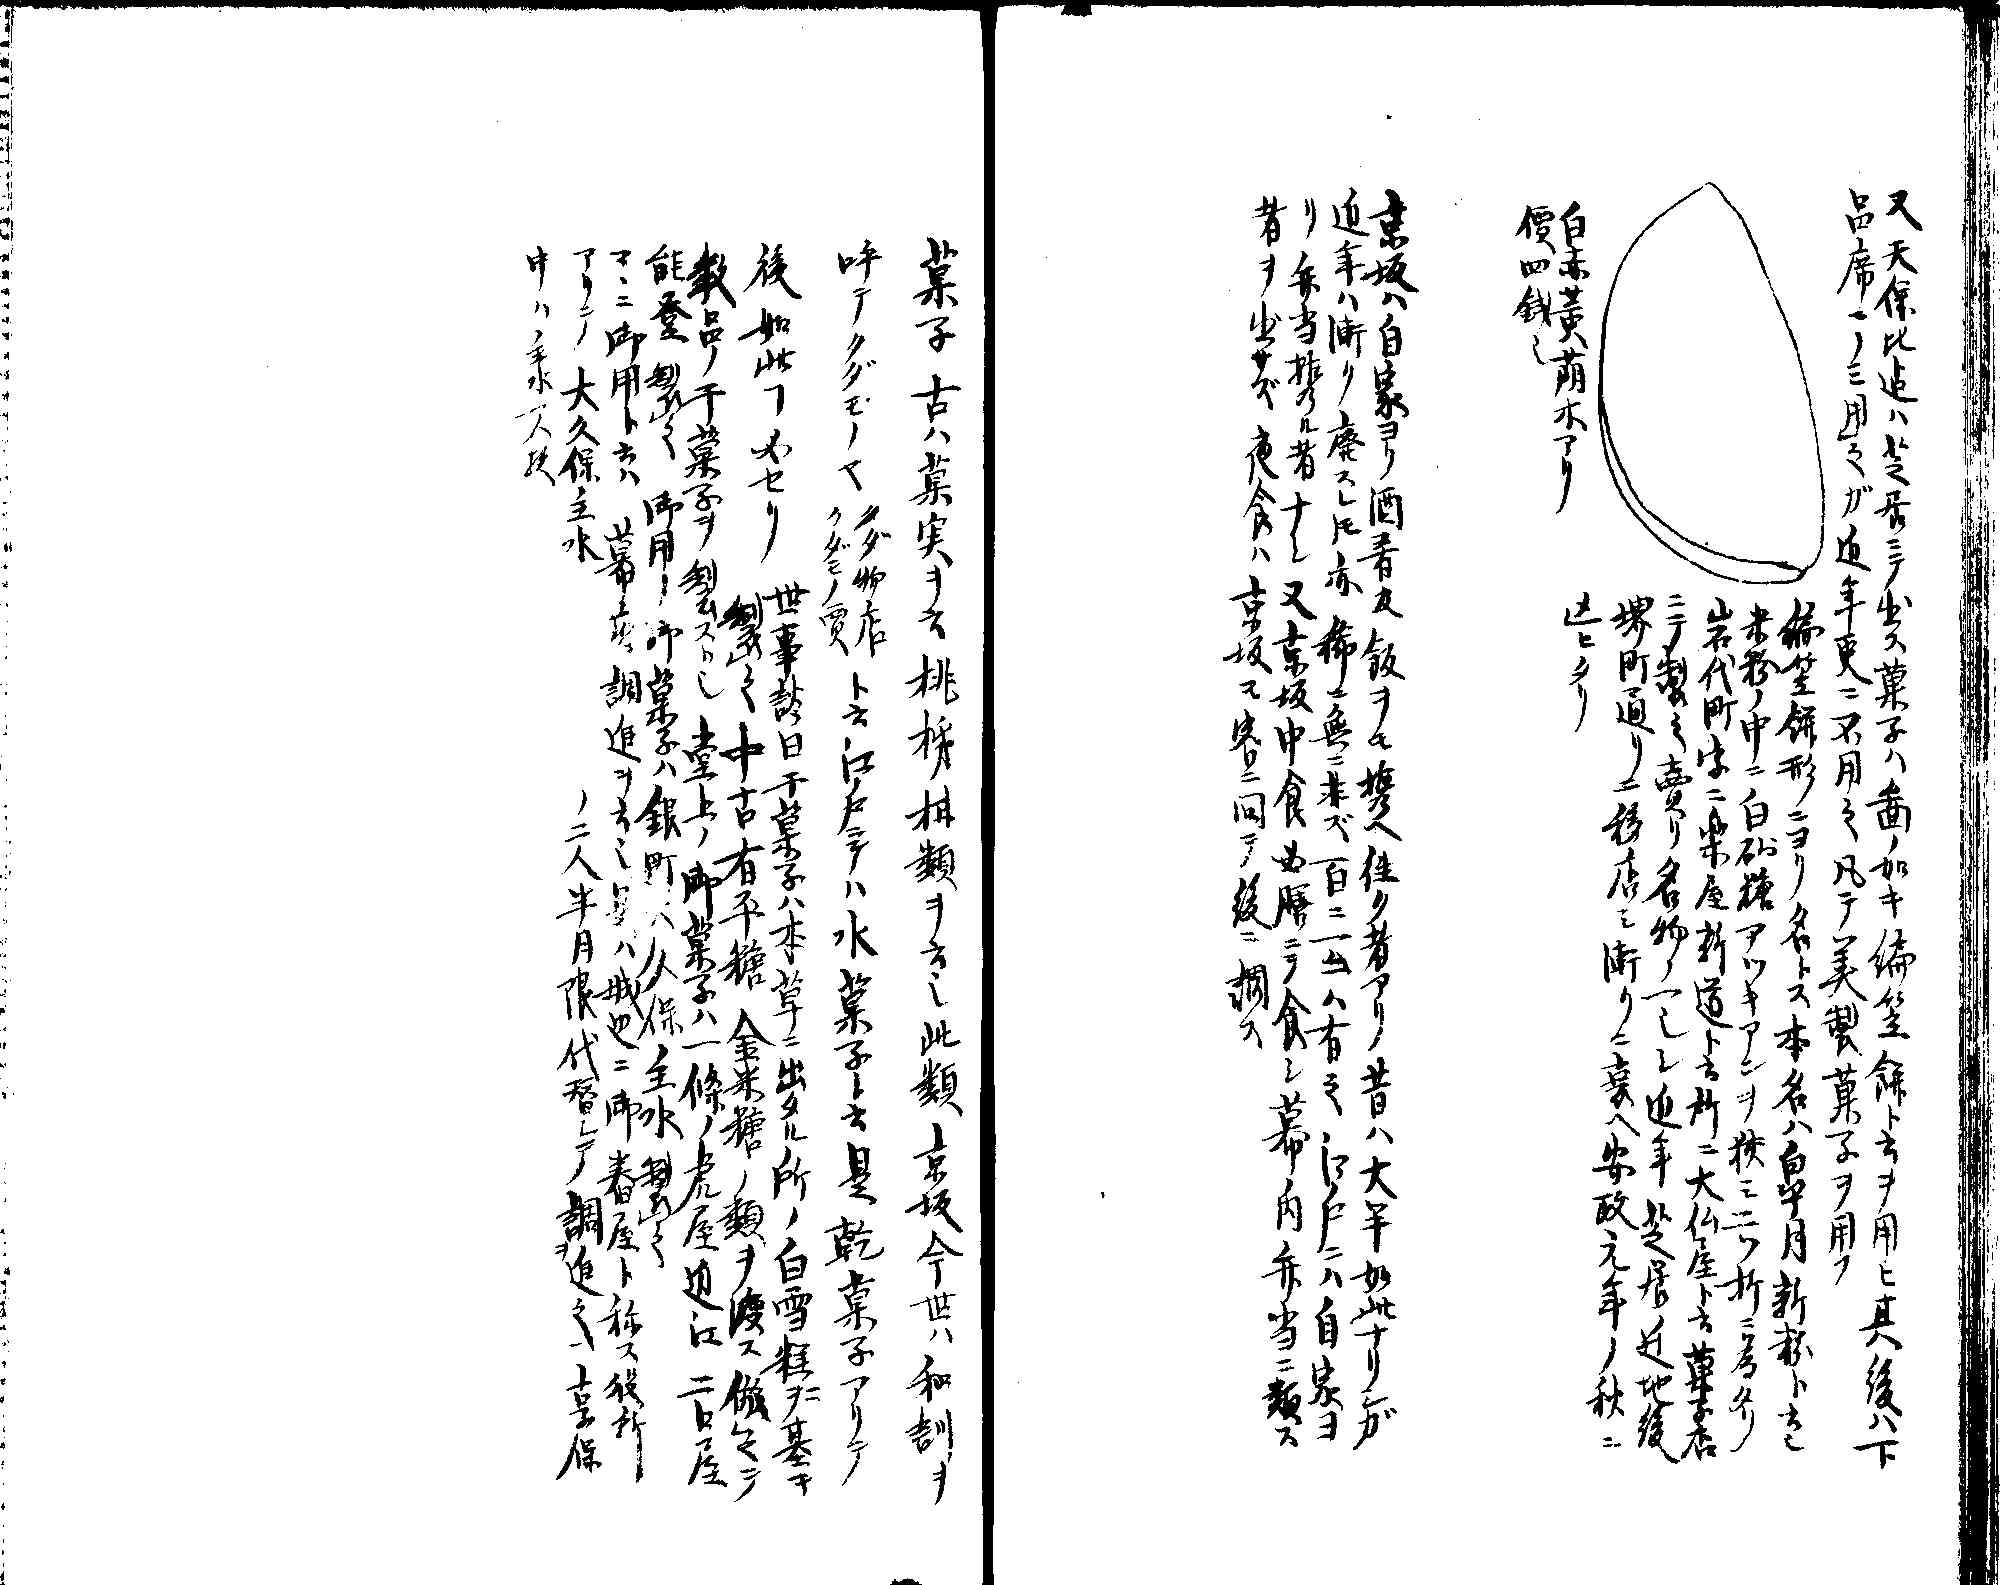 又天保比迄ハ芝居ニテ出ス菓子ハ畵ノ如キ編笠餅ト云ヲ用ヒ其後ハ下
品席ニノミ用之ガ近年更ニ不用之凡テ美製菓子ヲ用フ
編笠餅形ニヨリ名トス本名ハ白半月新粉ト云也
米粉ノ中ニ白砂糖アツキアンヲ挾ミ二ツ折ニ為タリ
岩代町字ニ楽屋新道ト云所ニ大仏屋ト云菓子店
ニテ製之賣リ名物ノ一也シ近年芝居ノ近地後
堺町通リニ移店シ漸クニ衰ヘ安政元年ノ秋ニ
迄ヒタリ
白赤黄萠木アリ
價四銭也
京坂ハ自家ヨリ酒肴及飯ヲモ携ヘ往ク者アリ昔ハ大半如此ナリシガ
近年ハ漸ク廃スレトモ亦稀ニ無ニ非ズ百ニ一二ハ有之江戸ニハ自家ヨ
リ弁当携ル者ナシ又京坂中食必膳ニテ食シ幕内弁当ニ類ス
者ヲ出サズ夜食ハ京坂モ客ニ問テ後ニ調ス
菓子 古ハ菓実ヲ云桃柿梨類ヲ云也此類京坂今世ハ和訓ヲ
呼テクダモノヤ クダ物店 クダモノ賣 ト云江戸ニテハ水菓子ト云是乾菓子アリテ
後如此下畧セリ 世事談曰干菓子ハ本草ニ出タル所ノ白雪糕ヲ基キ
製出之中古有平糖金米糖ノ類ヲ渡ス傚之ニテ
数品ノ干菓子ヲ製ストシ堂上ノ御菓子ハ一條ノ虎屋近江二口屋
能登製之 御用ノ御菓子ハ銀町大久保主水製之
マヽニ御用ト云ハ幕府ノ調進ヲ云也 ハ城西ニ御春屋ト称ス役所
アリテ大久保主水 ノ二人半月限代替シテ調進之 享保
中ハ主水一人